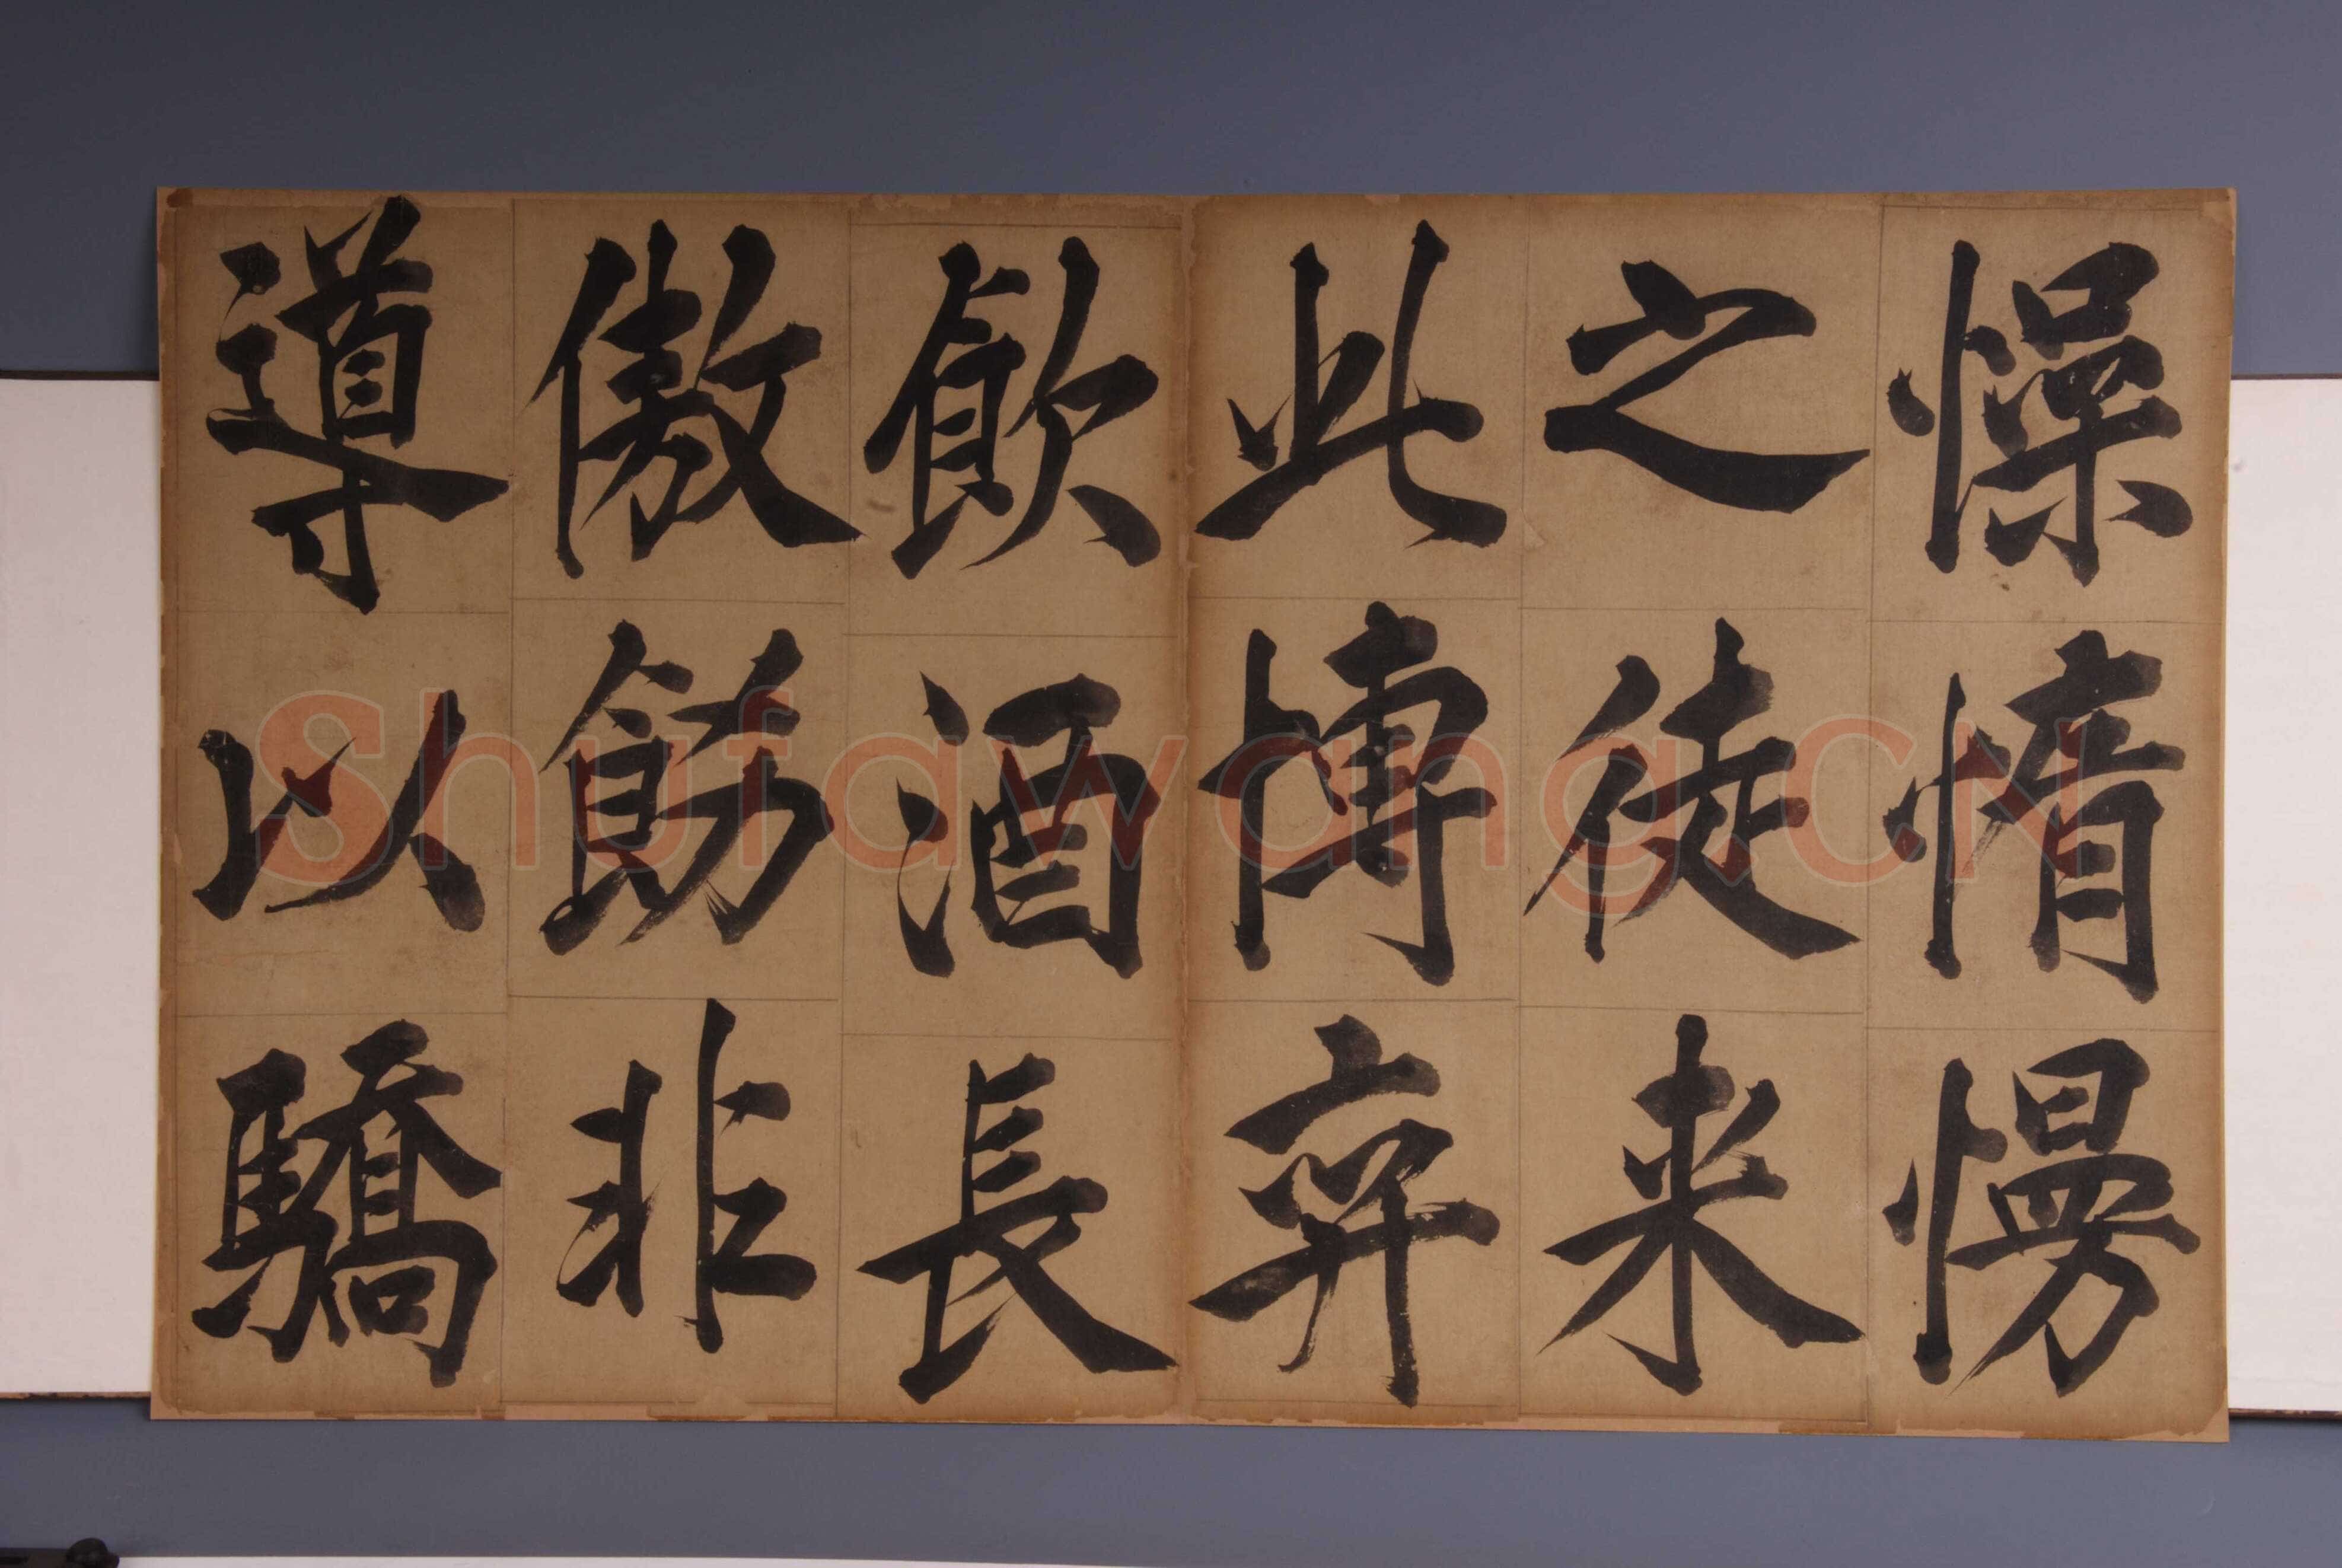 懆惰慢
之徒来
此博弈
飲酒長
傲飾非
導以驕
Shufawang.CN